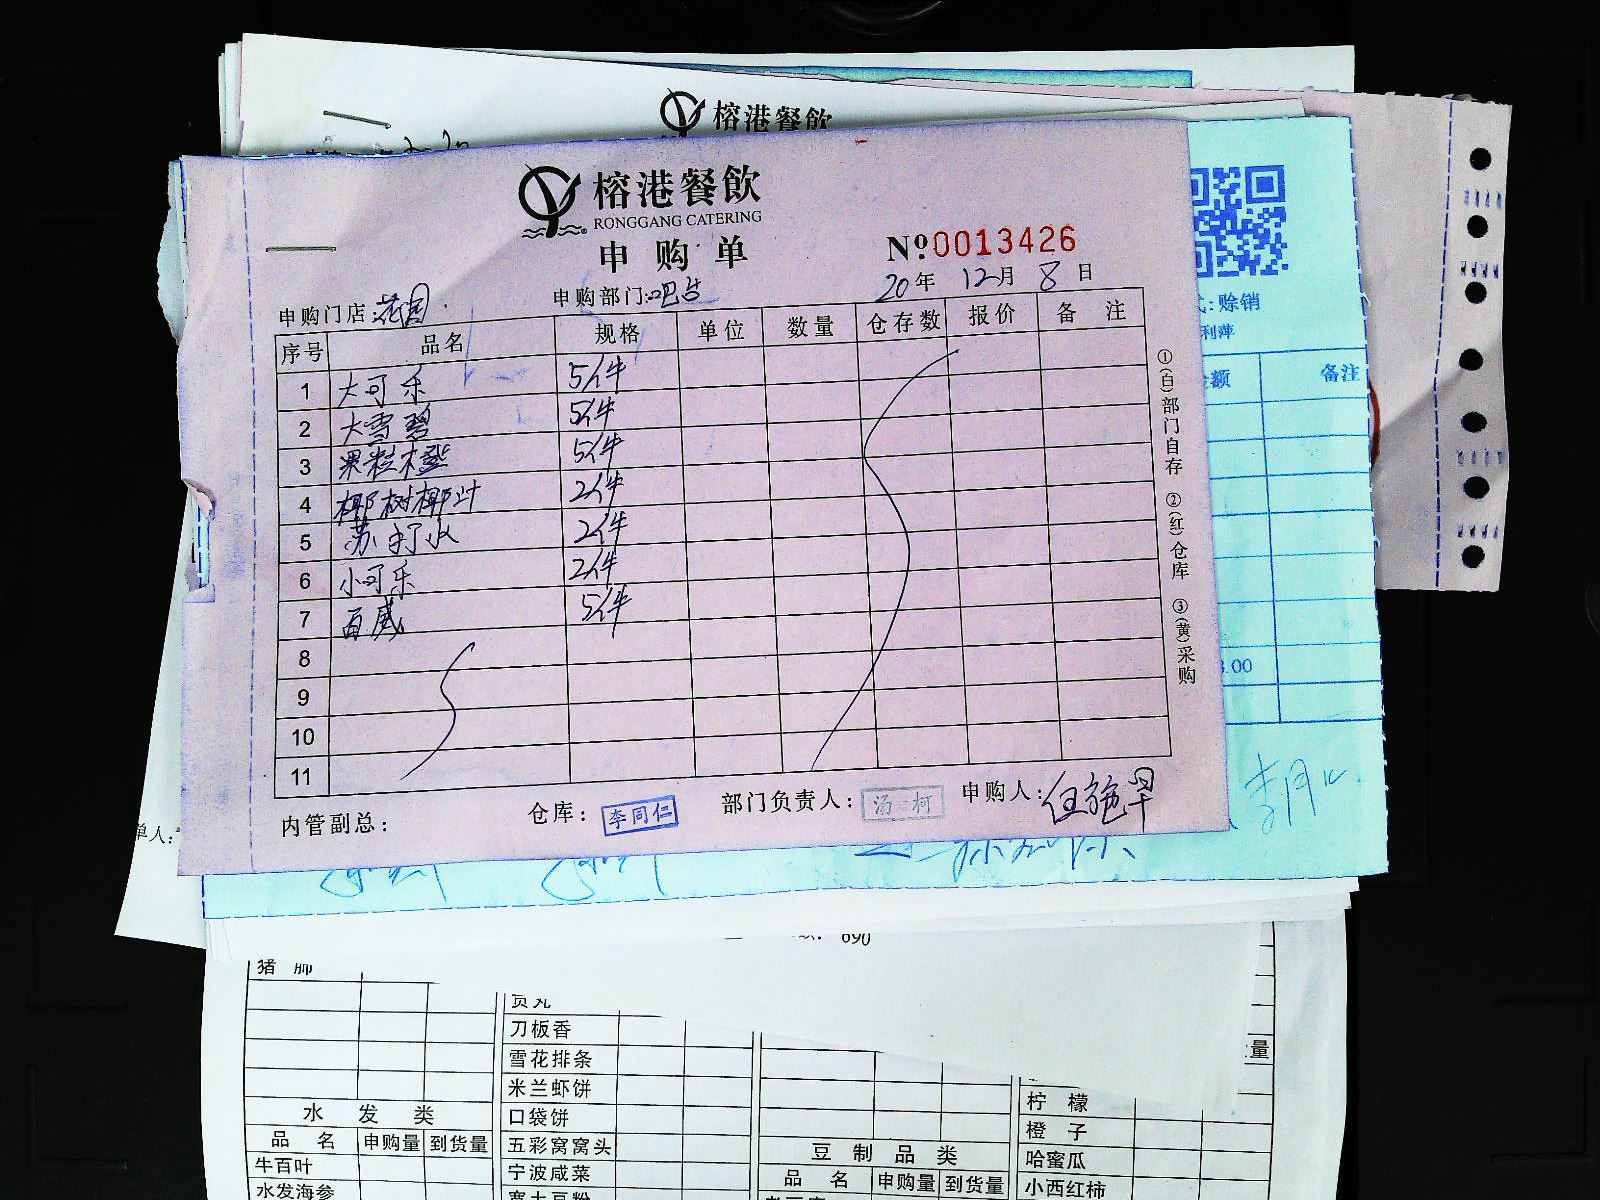 榕港餐飲
榕港餐飲
RONGGANG CATERING
申购单
№0013426
20年 12月 8日
申购门店:花园
申购部门:吧台
序号 品名 规格 单位 数量 仓存数 报价 备注
1 大可乐 5件
2 大雪碧 5件
3 果粒橙 5件
4 椰树椰汁 2件
5 苏打水 2件
6 小可乐 2件
7 百威 5件
8
9
10
11
①(白)部门自存 ②(红)仓库 ③(黄)采购
内管副总:
仓库: 李同仁
部门负责人:
申购人:
:赊销
利萍
备注
.00
单人:
690
猪肺
贡丸
刀板香
雪花排条
米兰虾饼
口袋饼
五彩窝窝头
宁波咸菜
水发类
品名 申购量 到货量
牛百叶
水发海参
豆制品类
品名 申购量 到货量
量
柠檬
橙子
哈蜜瓜
小西红柿